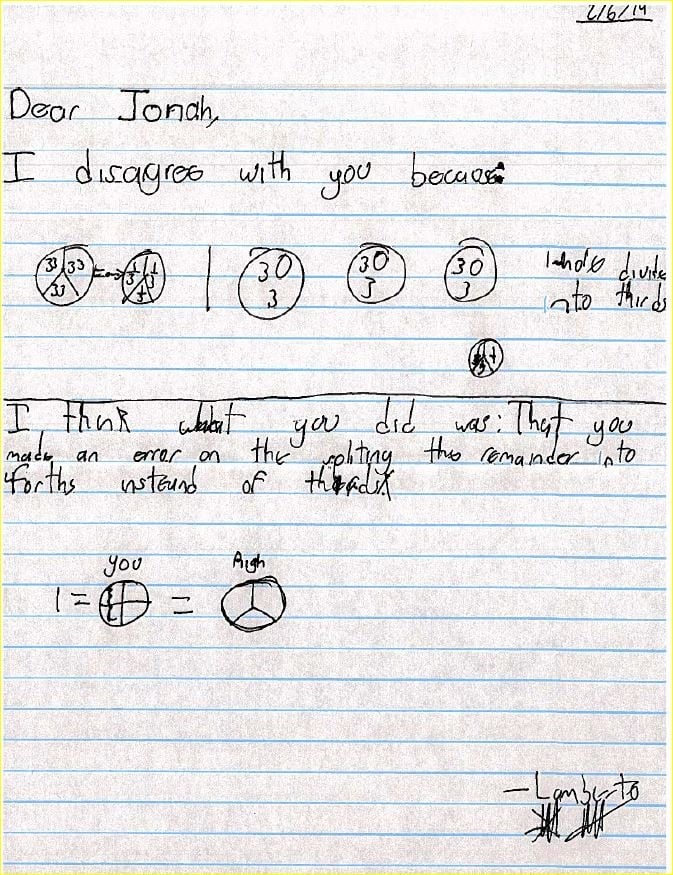 2/6/14
Dear Jonah,
I disagree with you because
33 33 33 1 3 1 3 1 3
30 3 30 3 30 3
divide
into thirds
I think what you did was: That you
made an error on the spliting the remainder into
forths insteand of
you Righ
1 = =
— Lamberto